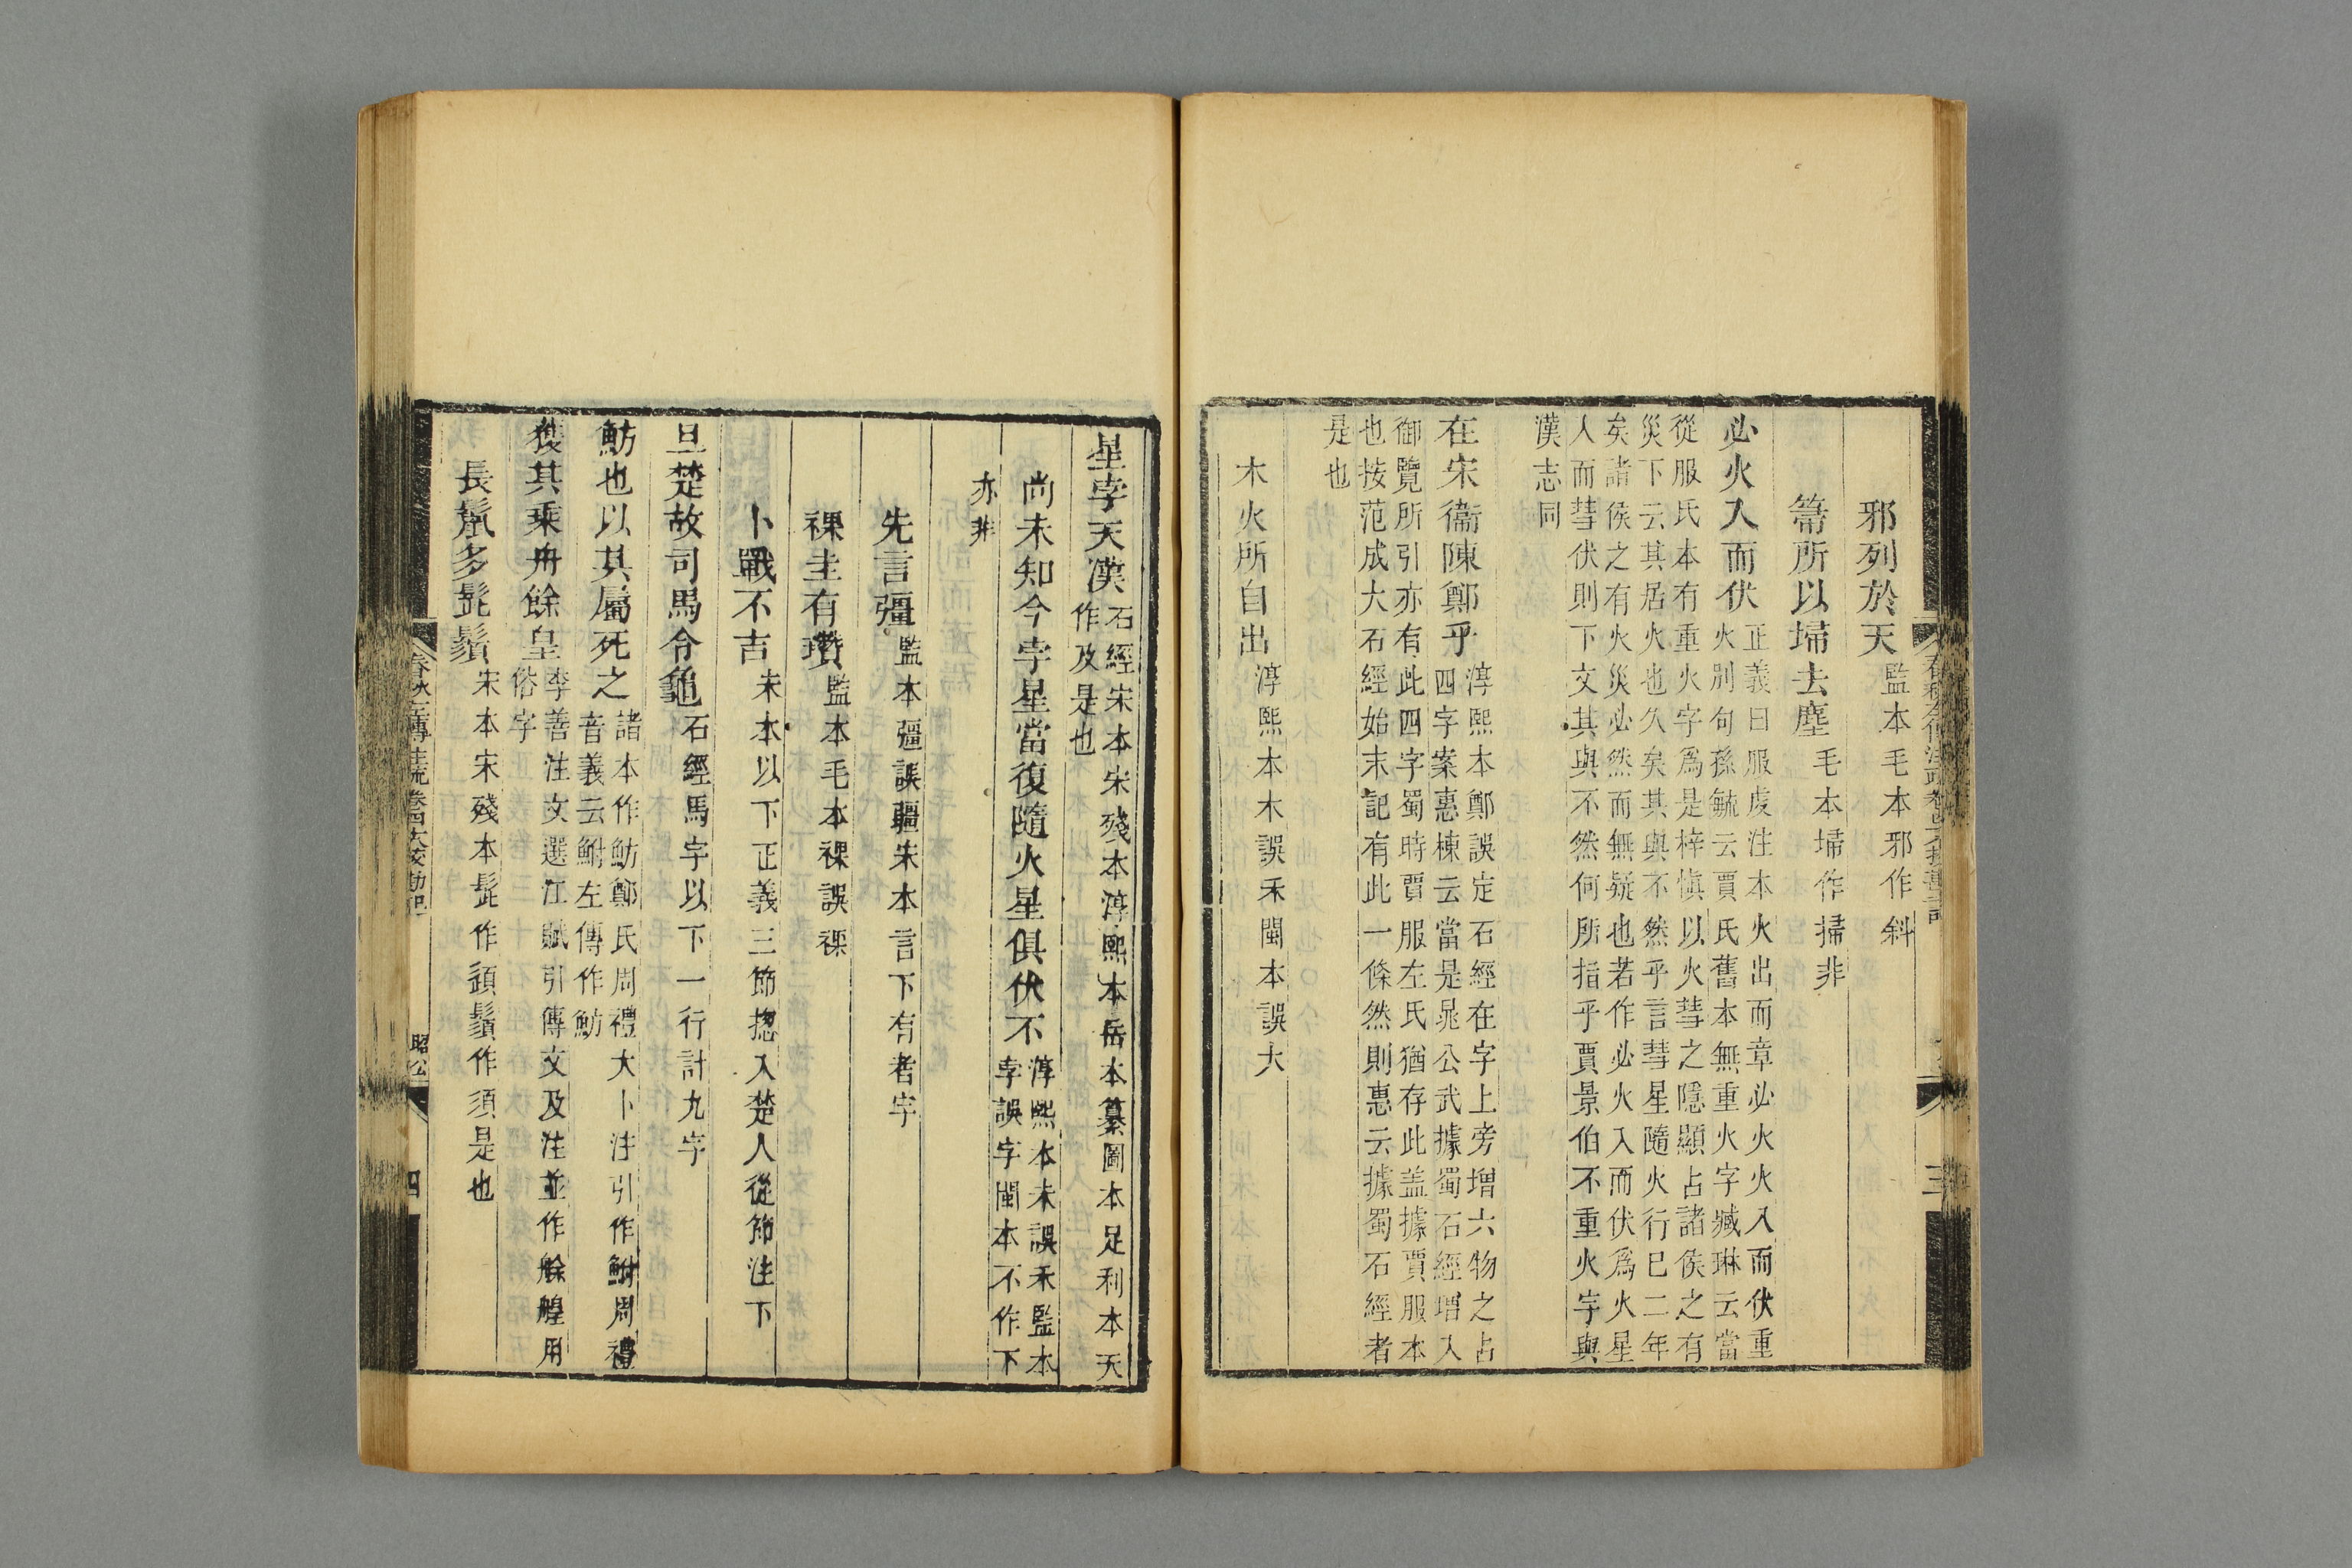 邪列於天監本毛本邪作斜
箒所以埽去塵毛本埽作掃非
必火入而伏正義曰服虔注本火出而章必火火入而伏重
火別句孫毓云賈氏舊本無重火字臧琳云當
從服氏本有重火字爲是梓愼以火彗之隱顯占諸侯之有
災下云其居火也久矣其與不然乎言彗星隨火行巳二年
矣諸侯之有火災必然而無疑也若作必火入而伏爲火星
人而彗伏則下文其與不然何所指乎賈景伯不重火字與
漢志同
在宋衞陳鄭乎淳熙本鄭誤定石經在字上旁增六物之占
四字案惠棟云當是晁公武據蜀石經增入
御覽所引亦有此四字蜀時賈服左氏猶存此盖據賈服本
也按范成大石經始末記有此一條然則惠云據蜀石經者
是也
木火所自出淳熙本木誤禾閩本誤大
三
星孛天漢石經宋本宋殘本淳熙本岳本纂圖本足利本天
作及是也
尚未知今孛星當復隨火星俱伏不淳熙本未誤禾監本
孛誤字閩本不作下
亦非
先言彊監本彊誤疆朱本言下有者字
祼圭有瓚監本毛本祼誤裸
卜戰不吉朱本以下正義三節揔入楚人從師注下
且楚故司馬令龜石經馬字以下一行計九字
魴也以其屬死之諸本作魴鄭氏周禮大卜注引作鮒周禮
音義云鮒左傳作魴
獲其乘舟餘皇李善注文選江賦引傳文及注並作艅艎用
俗字
長鬛多髭鬚宋本宋殘本髭作頾鬚作須是也
春秋左傳注疏卷四十八校勘記　昭公　四